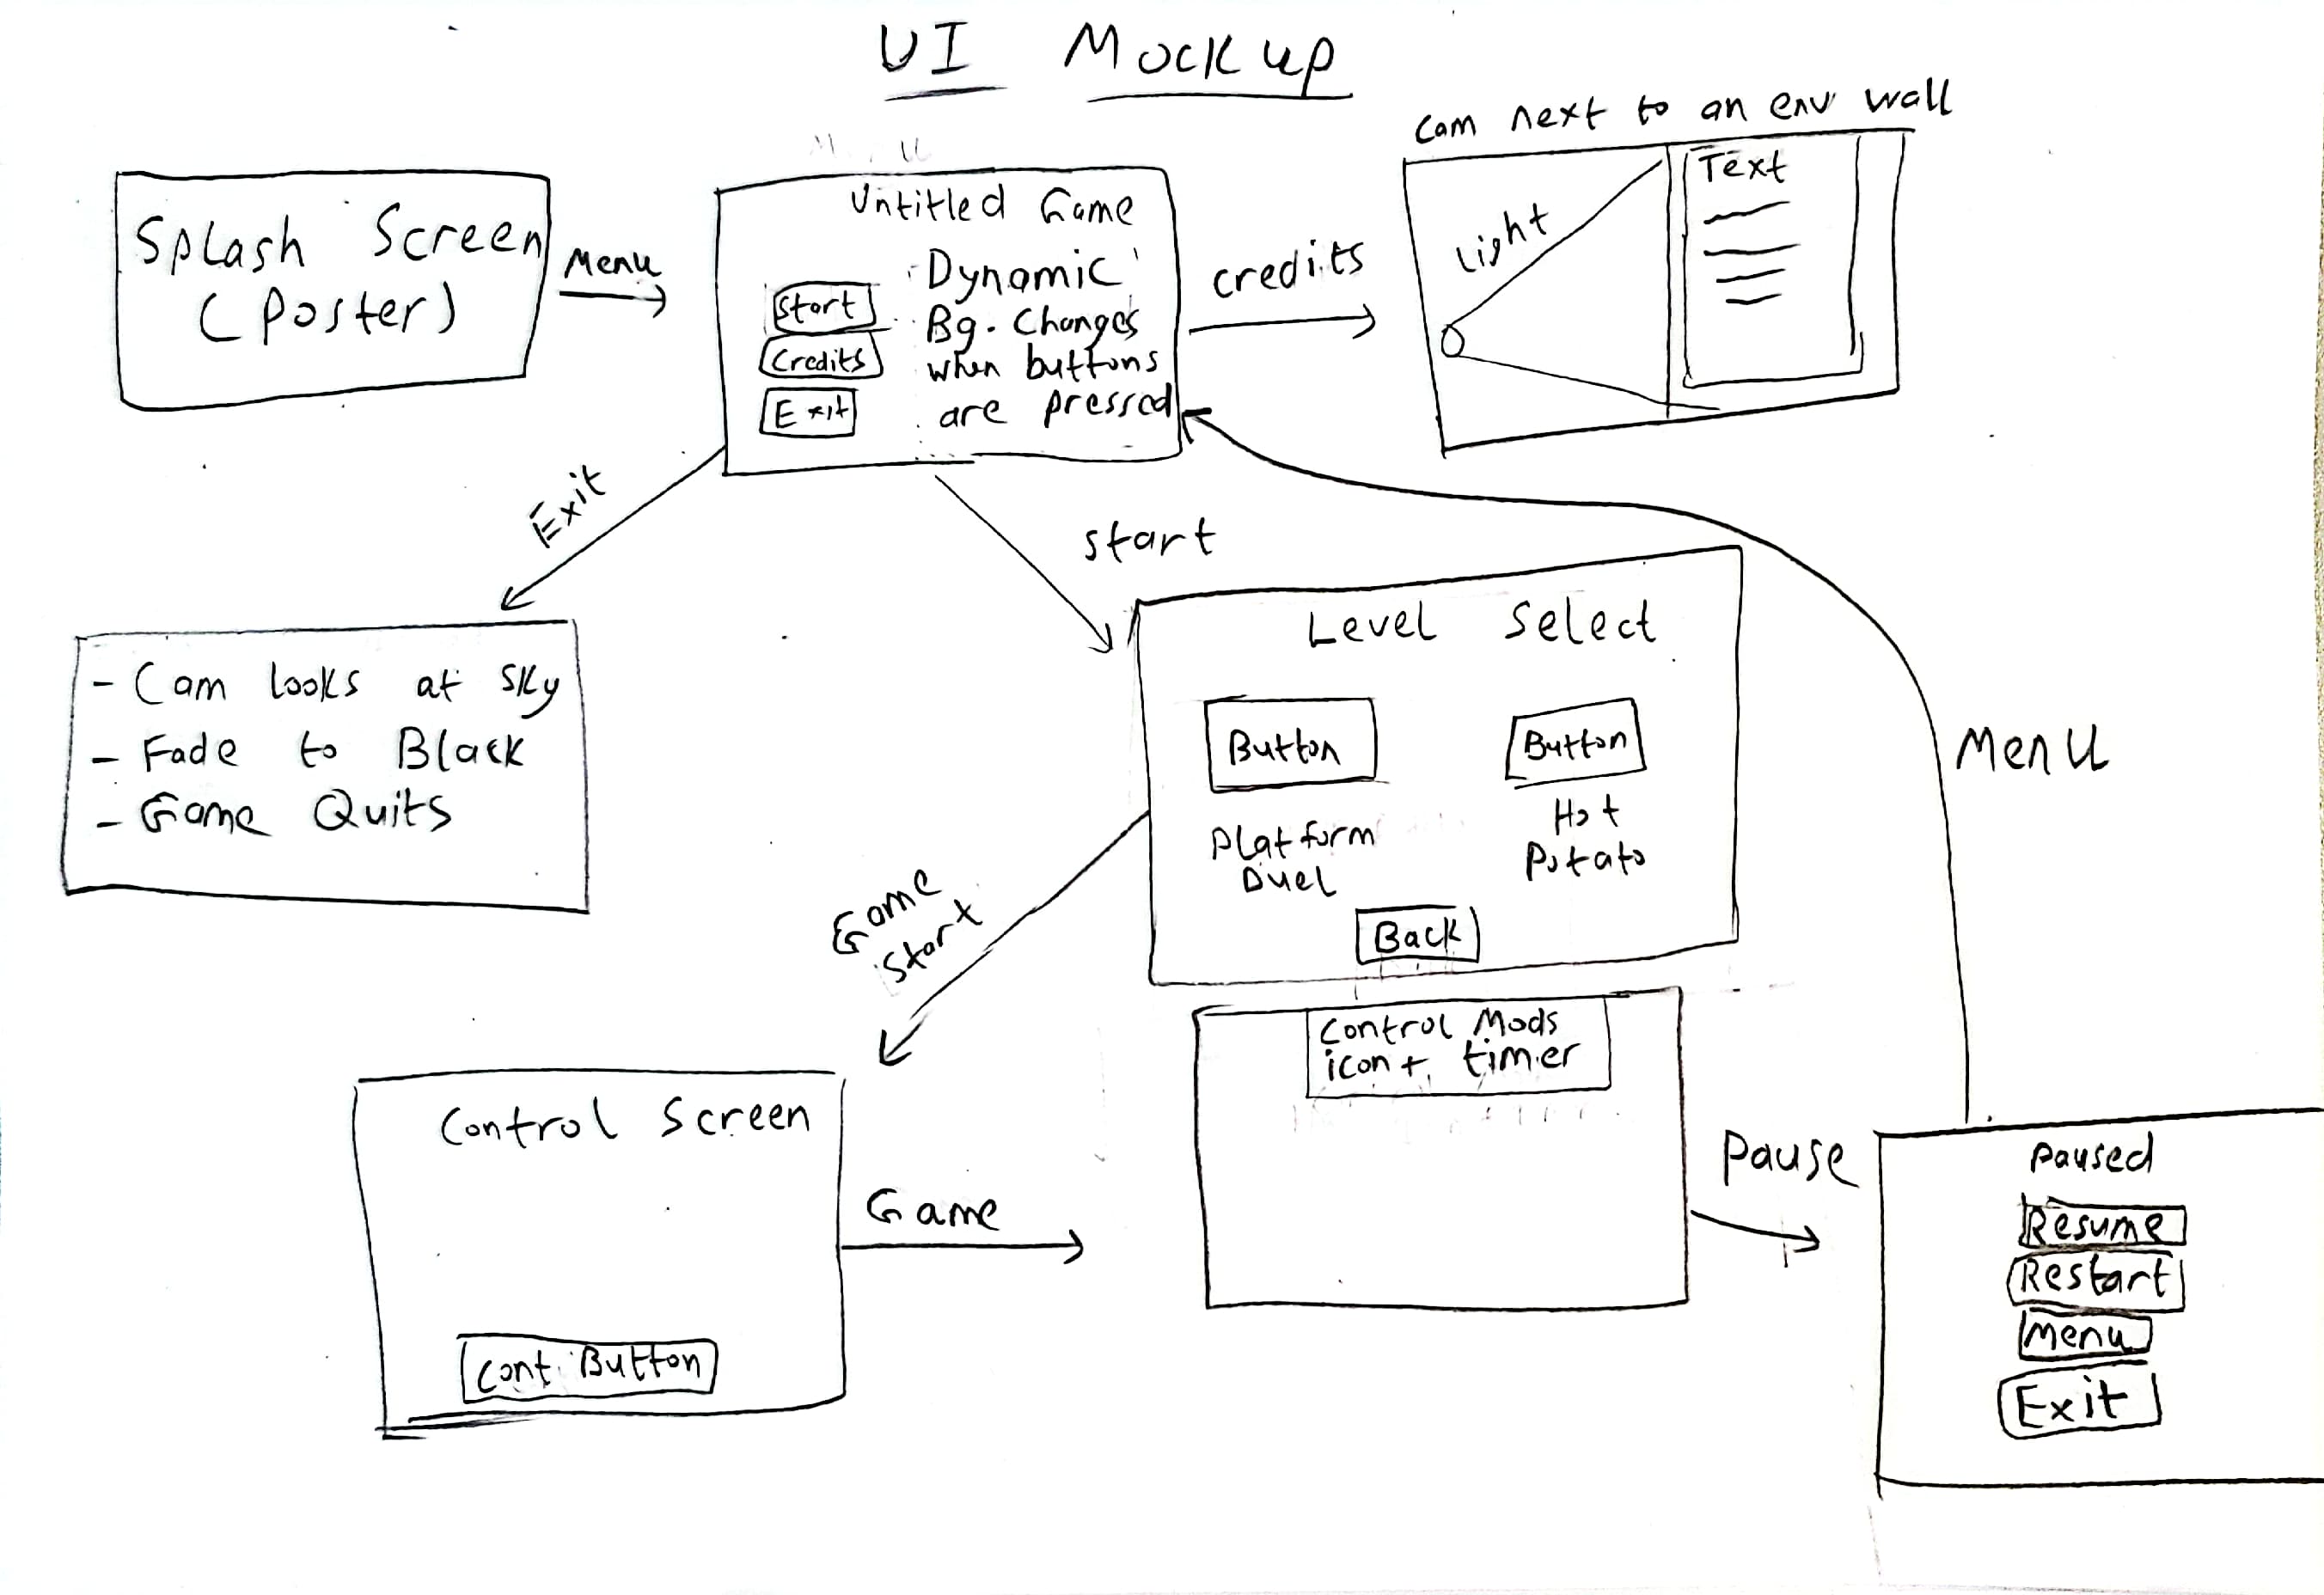 UI Mockup
Splash Screen
(Poster)
Menu
Untitled Game
Dynamic
Bg. Changes
when buttons
are pressed
Start
Credits
Exit
credits
Cam next to an env wall
Light
Text
Exit
- Cam looks at sky
- Fade to Black
- Game Quits
start
Level Select
Button
Platform
Duel
Button
Hot
Potato
Back
Menu
Game
Start
Control Screen
Cont. Button
Game
Control Mods
icon + timer
Pause
Paused
Resume
Restart
Menu
Exit